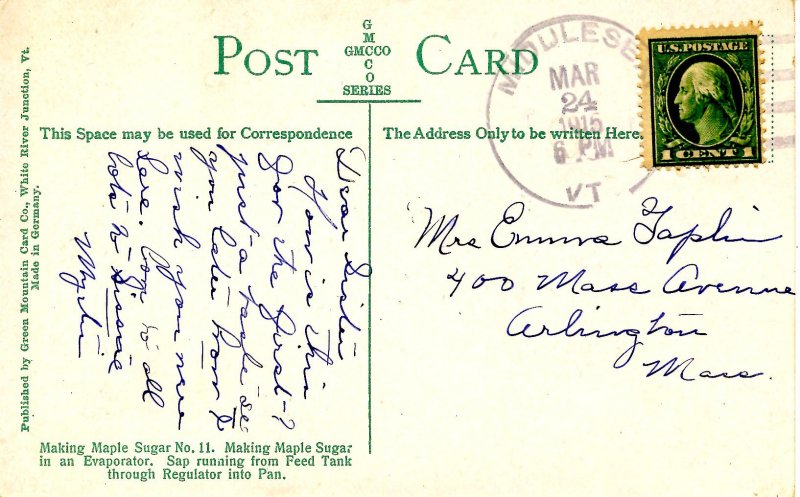 G
M
GMCCO
C
O
SERIES
POST CARD
MIDDLESE
MAR
24
1915
6 PM
VT
U.S. POSTAGE
1 CENT 1
This Space may be used for Correspondence
The Address Only to be written Here.
Dear Sister
How is this
for the first?
just a taste
you later
wish you were
here. Love to all
lots to
Mrs Emma Taplin
400 Mass Avenue
Arlington
Mass.
Published by Green Mountain Card Co., White River Junction, Vt.
Made in Germany.
Making Maple Sugar No. 11. Making Maple Sugar
in an Evaporator. Sap running from Feed Tank
through Regulator into Pan.